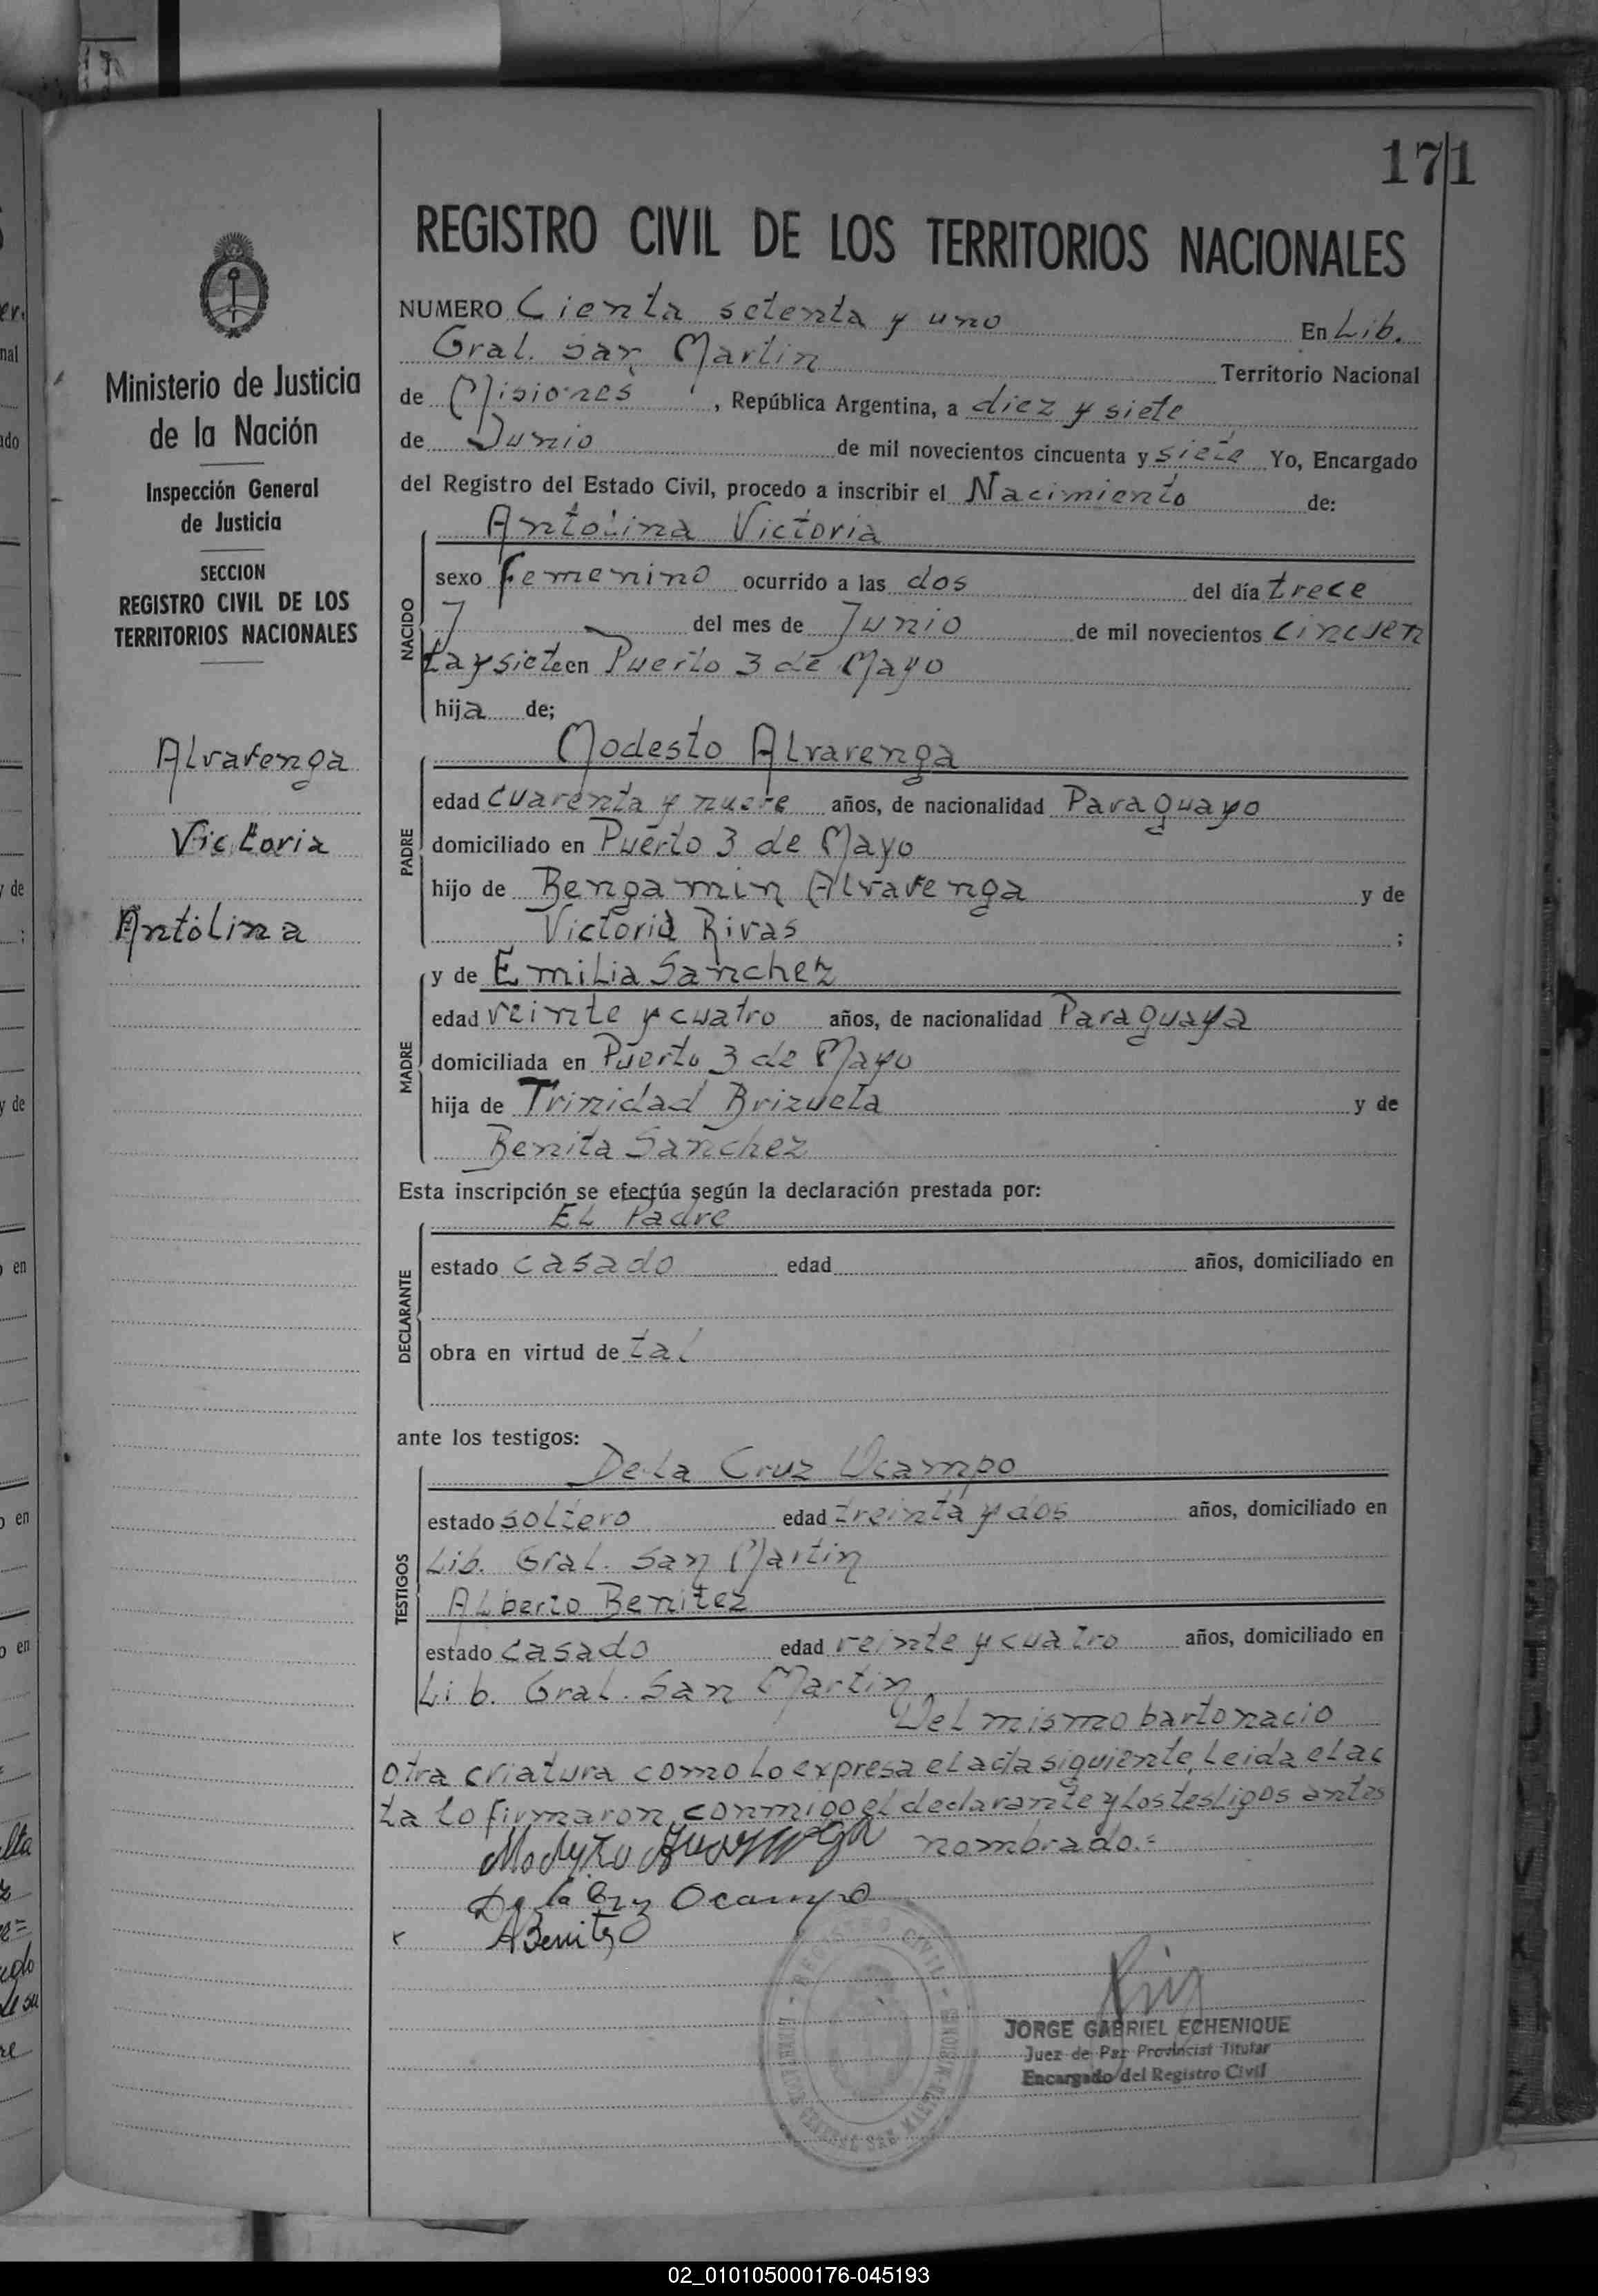 171
REGISTRO CIVIL DE LOS TERRITORIOS NACIONALES
Ministerio de Justicia
de la Nación
Inspección General
de Justicia
SECCION
REGISTRO CIVIL DE LOS
TERRITORIOS NACIONALES
Alvarenga
Victoria
Antolina
NUMERO Cienta setenta y uno En Lib.
Gral. San Martin Territorio Nacional
de Misiones, República Argentina, a diez y siete
de Junio de mil novecientos cincuenta y siete Yo, Encargado
del Registro del Estado Civil, procedo a inscribir el Nacimiento de:
NACIDO
Antolina Victoria
sexo femenino ocurrido a las dos del día trece
del mes de Junio de mil novecientos cincuen
ta y siete en Puerto 3 de Mayo
hija de;
PADRE
Modesto Alvarenga
edad cuarenta y nueve años, de nacionalidad Paraguayo
domiciliado en Puerto 3 de Mayo
hijo de Bengamin Alvarenga y de
Victoria Rivas ;
MADRE
y de Emilia Sanchez
edad veinte y cuatro años, de nacionalidad Paraguaya
domiciliada en Puerto 3 de Mayo
hija de Trinidad Brizuela y de
Benita Sanchez
Esta inscripción se efectúa según la declaración prestada por:
DECLARANTE
El Padre
estado casado edad años, domiciliado en
obra en virtud de tal
ante los testigos:
TESTIGOS
De La Cruz Ocampo
estado soltero edad treinta y dos años, domiciliado en
Lib. Gral. San Martin
Alberto Benitez
estado casado edad veinte y cuatro años, domiciliado en
Lib. Gral. San Martin
Del mismo barto nacio
otra criatura como lo expresa el acta siguiente, Leida el ac
ta lo firmaron, conmigo el declarante y los testigos antes
nombrado.=
De la Cruz Ocampo
ABenitez
REGISTRO CIVIL
JORGE GABRIEL ECHENIQUE
Juez de Paz Provincial Titular
Encargado del Registro Civil
02_010105000176-045193